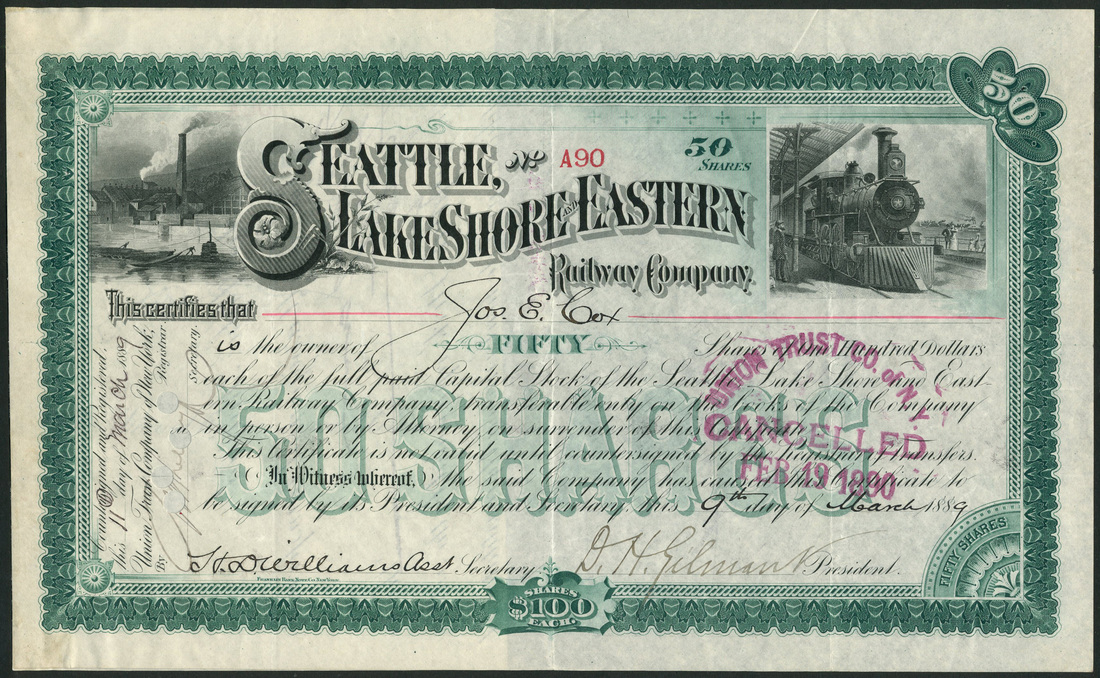 50
SEATTLE, No A90 50 SHARES
LAKE SHORE AND EASTERN
Railway Company.
This certifies that Jos. E. Cox
is the owner of FIFTY Shares of One Hundred Dollars
each of the full paid Capital Stock of the Seattle Lake Shore and East-
ern Railway Company transferable only on the books of the Company
in person or by Attorney on surrender of this Certificate.
This Certificate is not valid until countersigned by the Registrar of Transfers.
In Witness whereof, the said Company has caused this Certificate to
be signed by its President and Secretary, this 9th day of March 1889
H. D. Williams Asst Secretary. D. H. Gilman President.
50 SHARES
UNION TRUST CO. of N.Y.
CANCELLED
FEB 19 1890
Countersigned and Registered
this 11 day of March 1889
Union Trust Company of New York,
Registrar
By Secretary.
FIFTY SHARES
SHARES
$100
EACH.